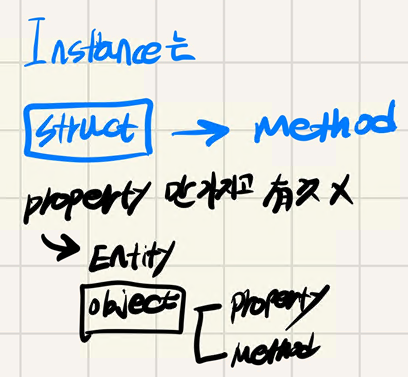 Instance는
struct → Method
property 만 가지고 有又 X
↳ Entity
object
property
Method